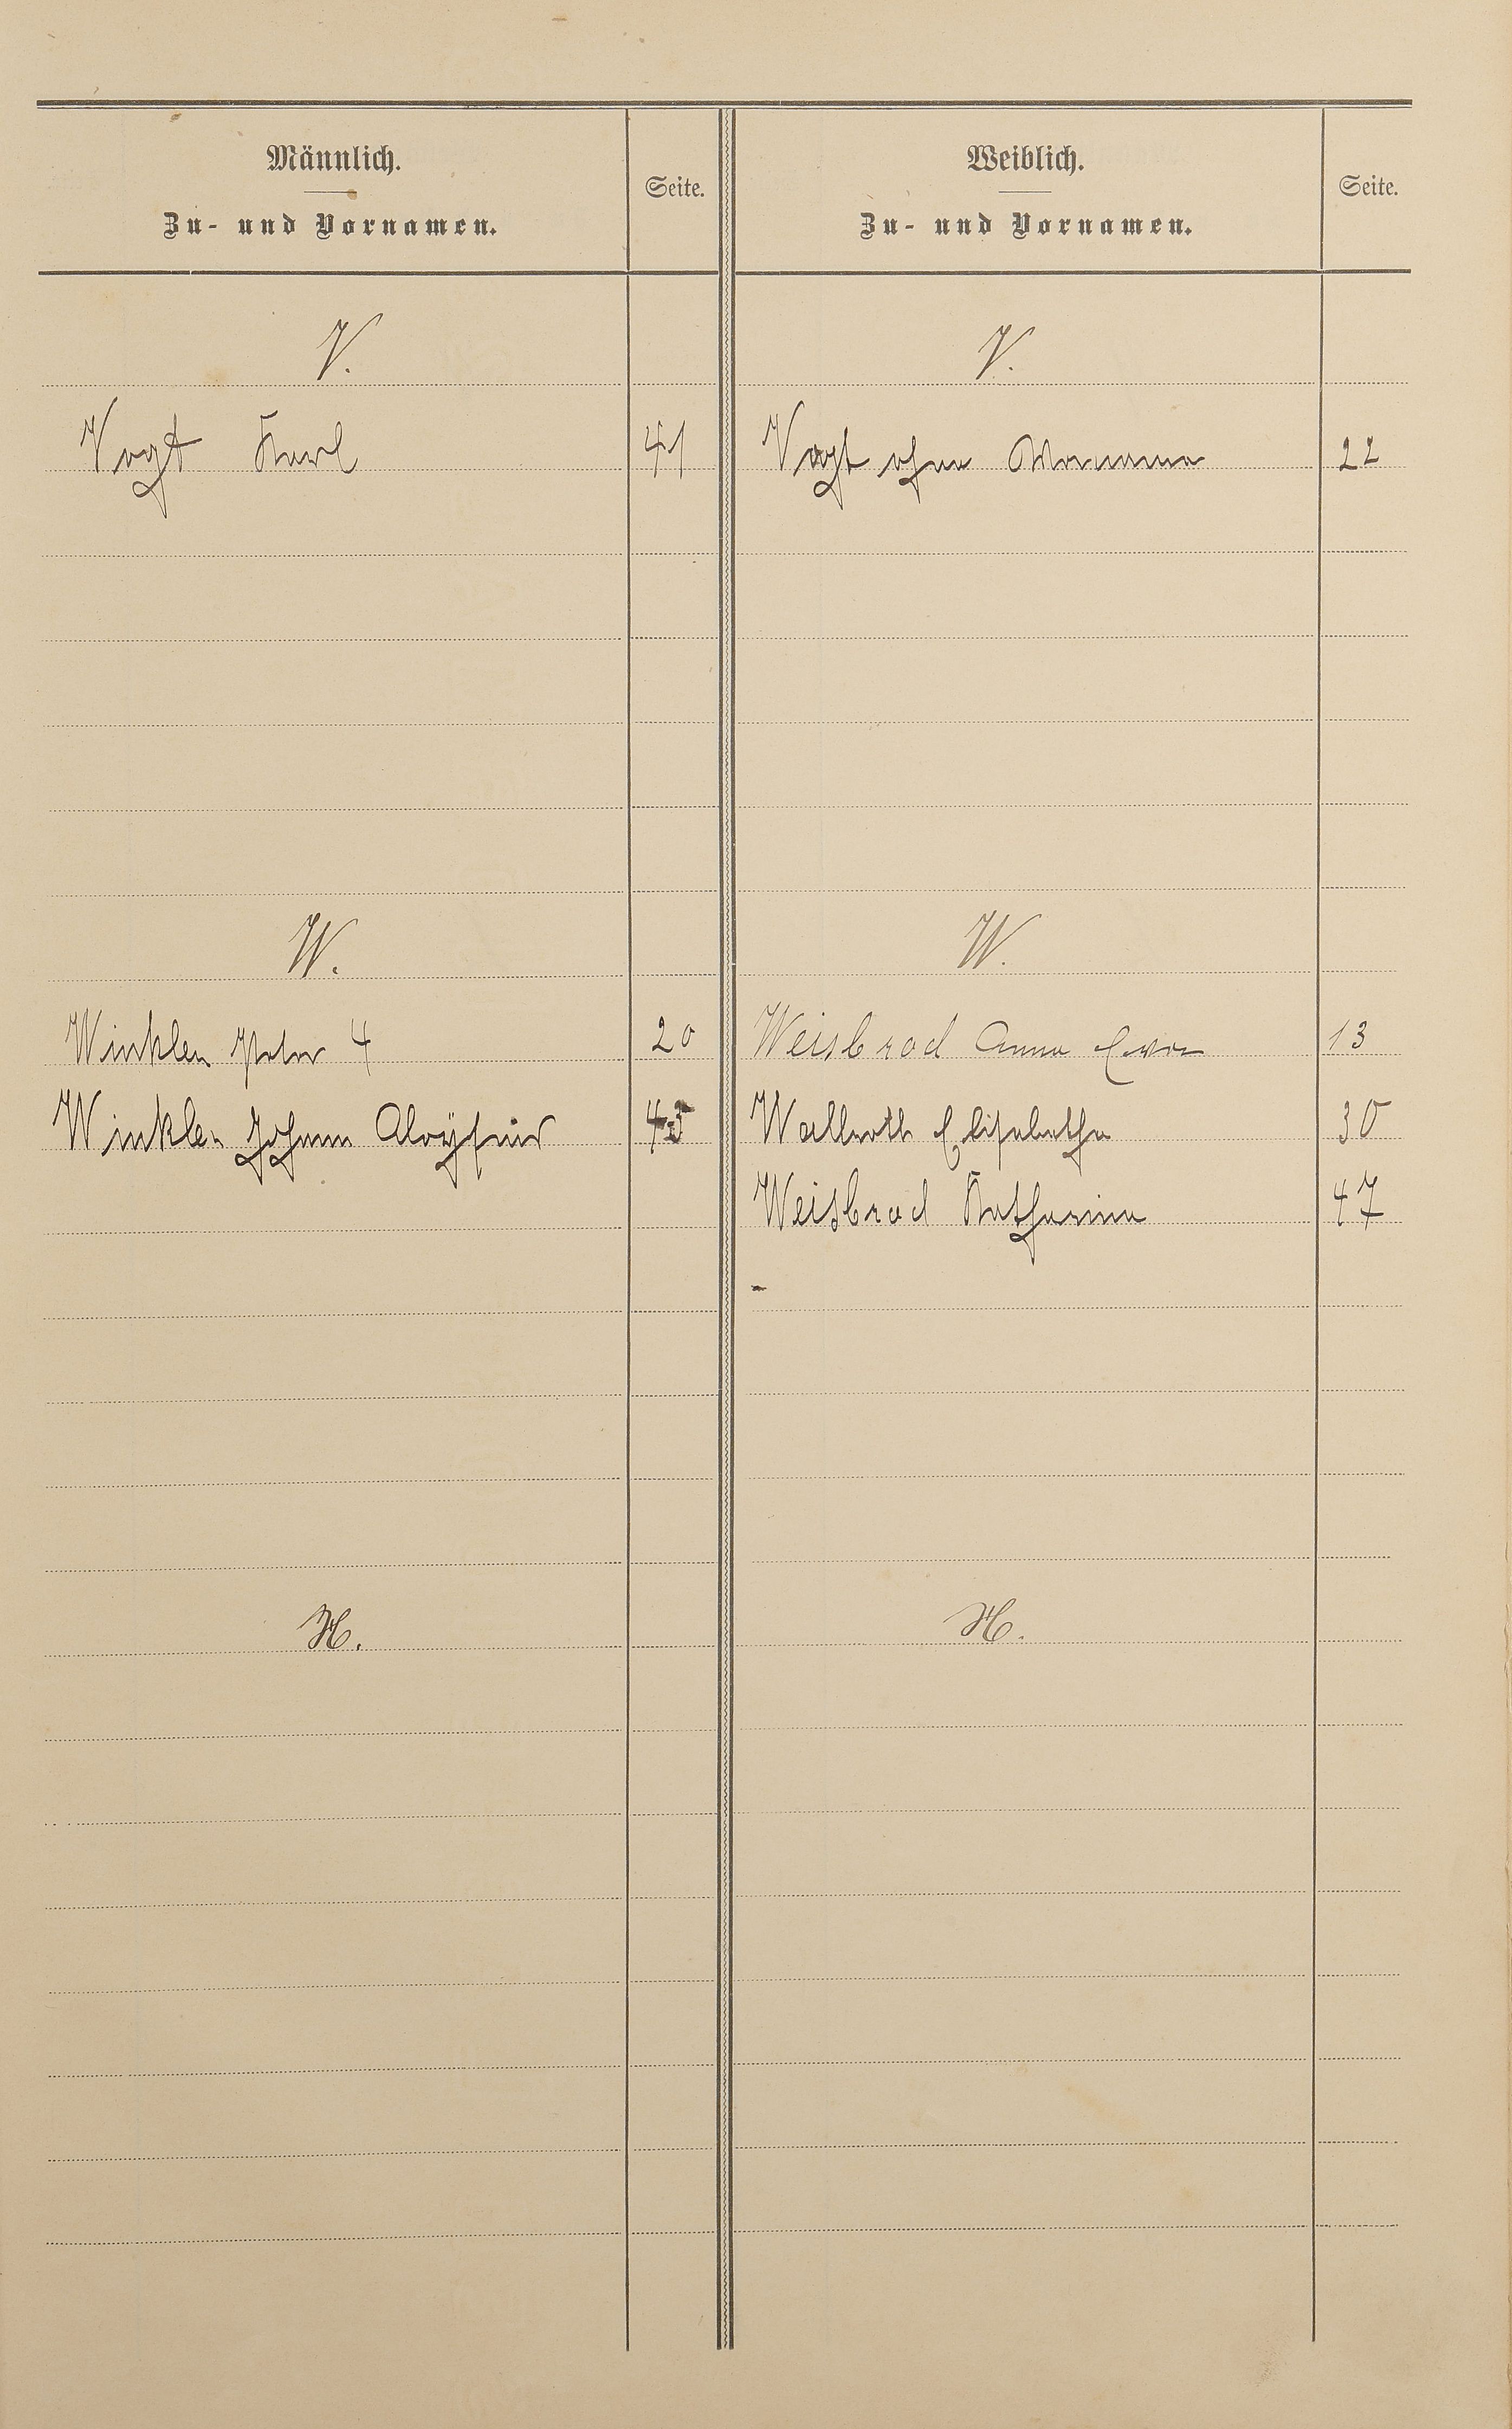 Männlich.
Zu- und Vornamen.
Seite.
Weiblich.
Zu- und Vornamen.
Seite.
V.
V.
Vogt Karl 41
Vogt ohne Vorname 22
W.
W.
Winkler Peter 4 20
Weisbrod Anna Eva 13
Winkler Johann Aloÿsius 45
Wallroth Elisabetha 30
Weisbrod Katharina 47
X.
X.